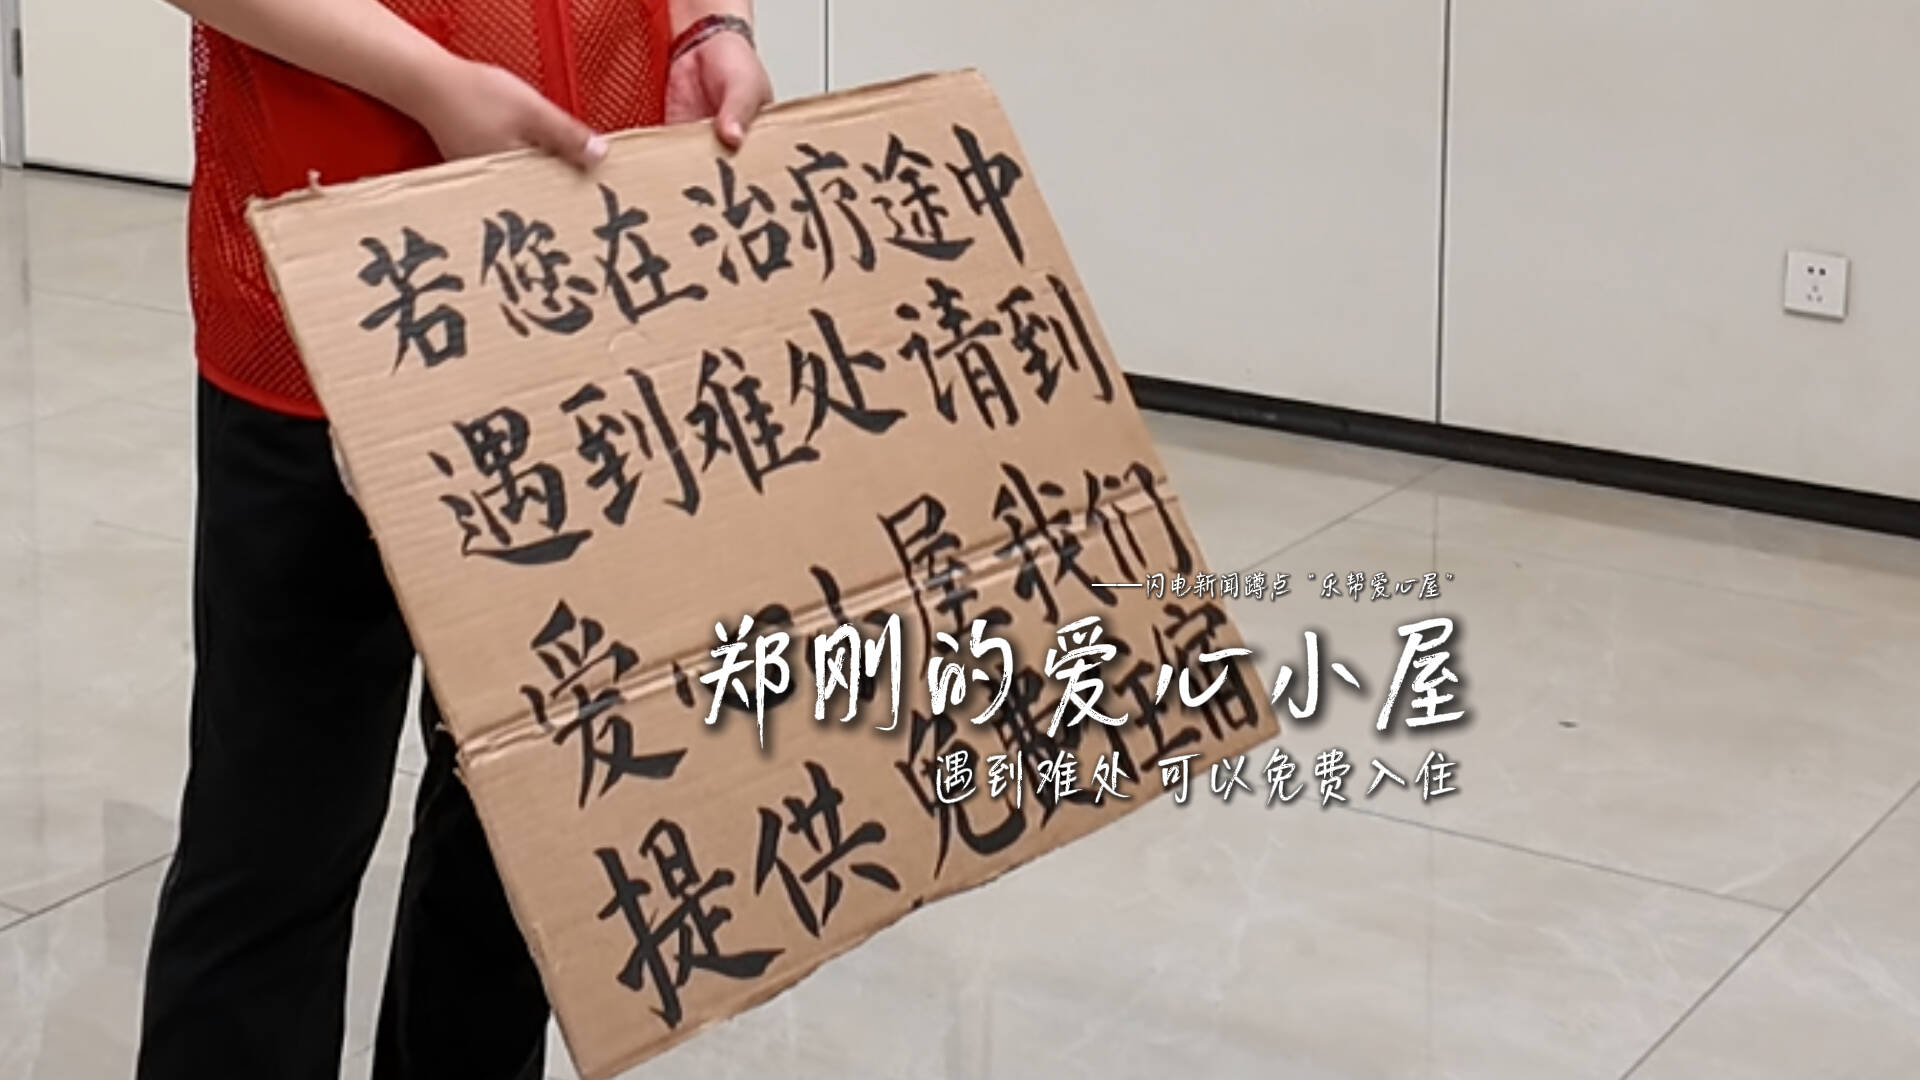 若您在治疗途中
遇到难处请到
爱心小屋我们
提供免费住宿
——闪电新闻蹲点“乐帮爱心屋”
郑刚的爱心小屋
遇到难处 可以免费入住